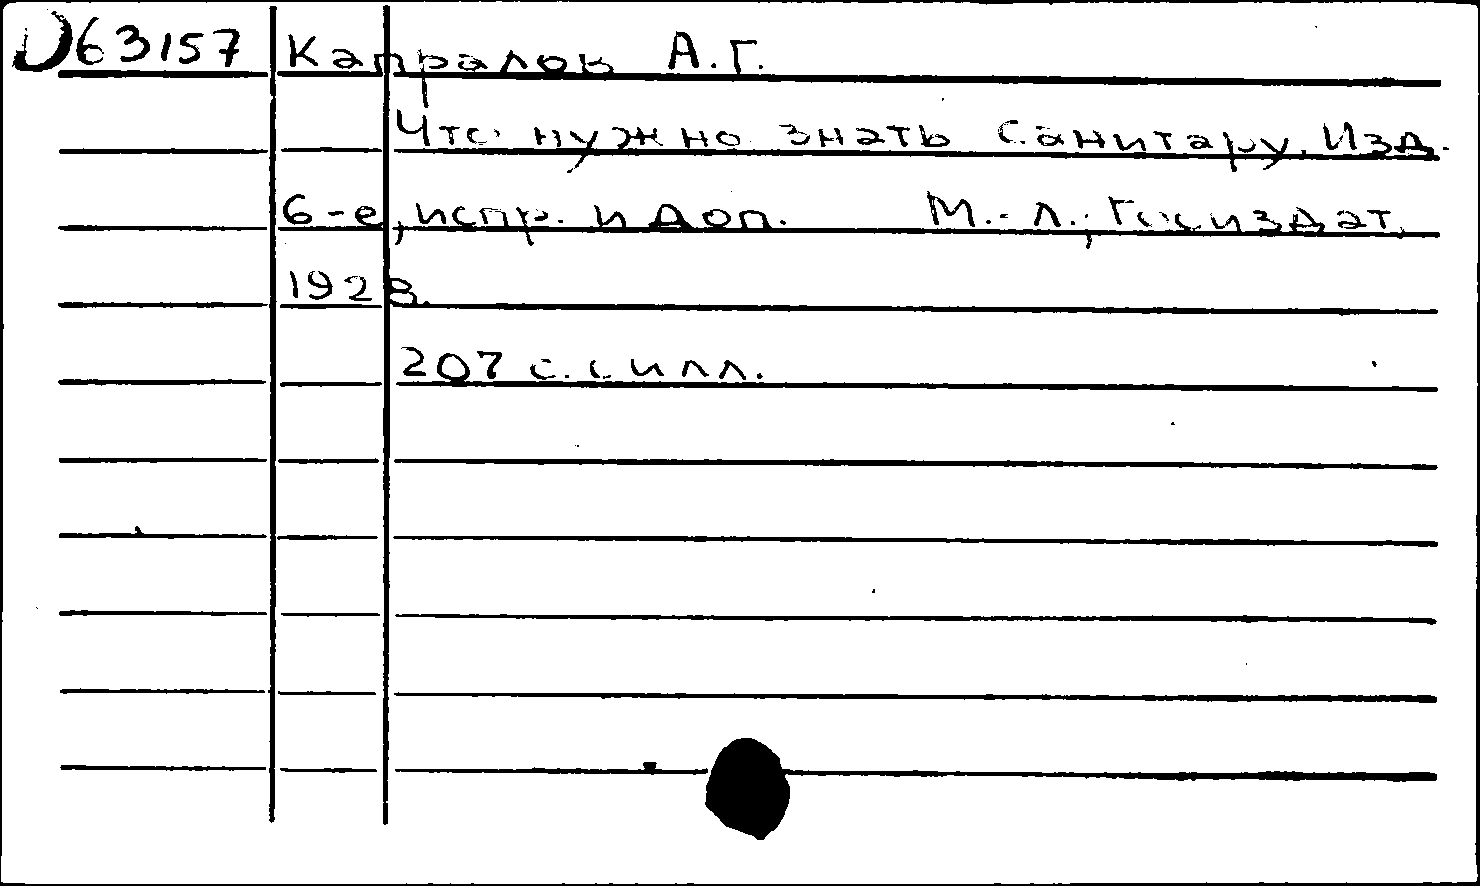 D63157 Капралов А.Г.
Что нужно знать санитару. Изд.
6-е, испр. и доп. М.-Л., Госиздат,
1928.
207 с. с илл.